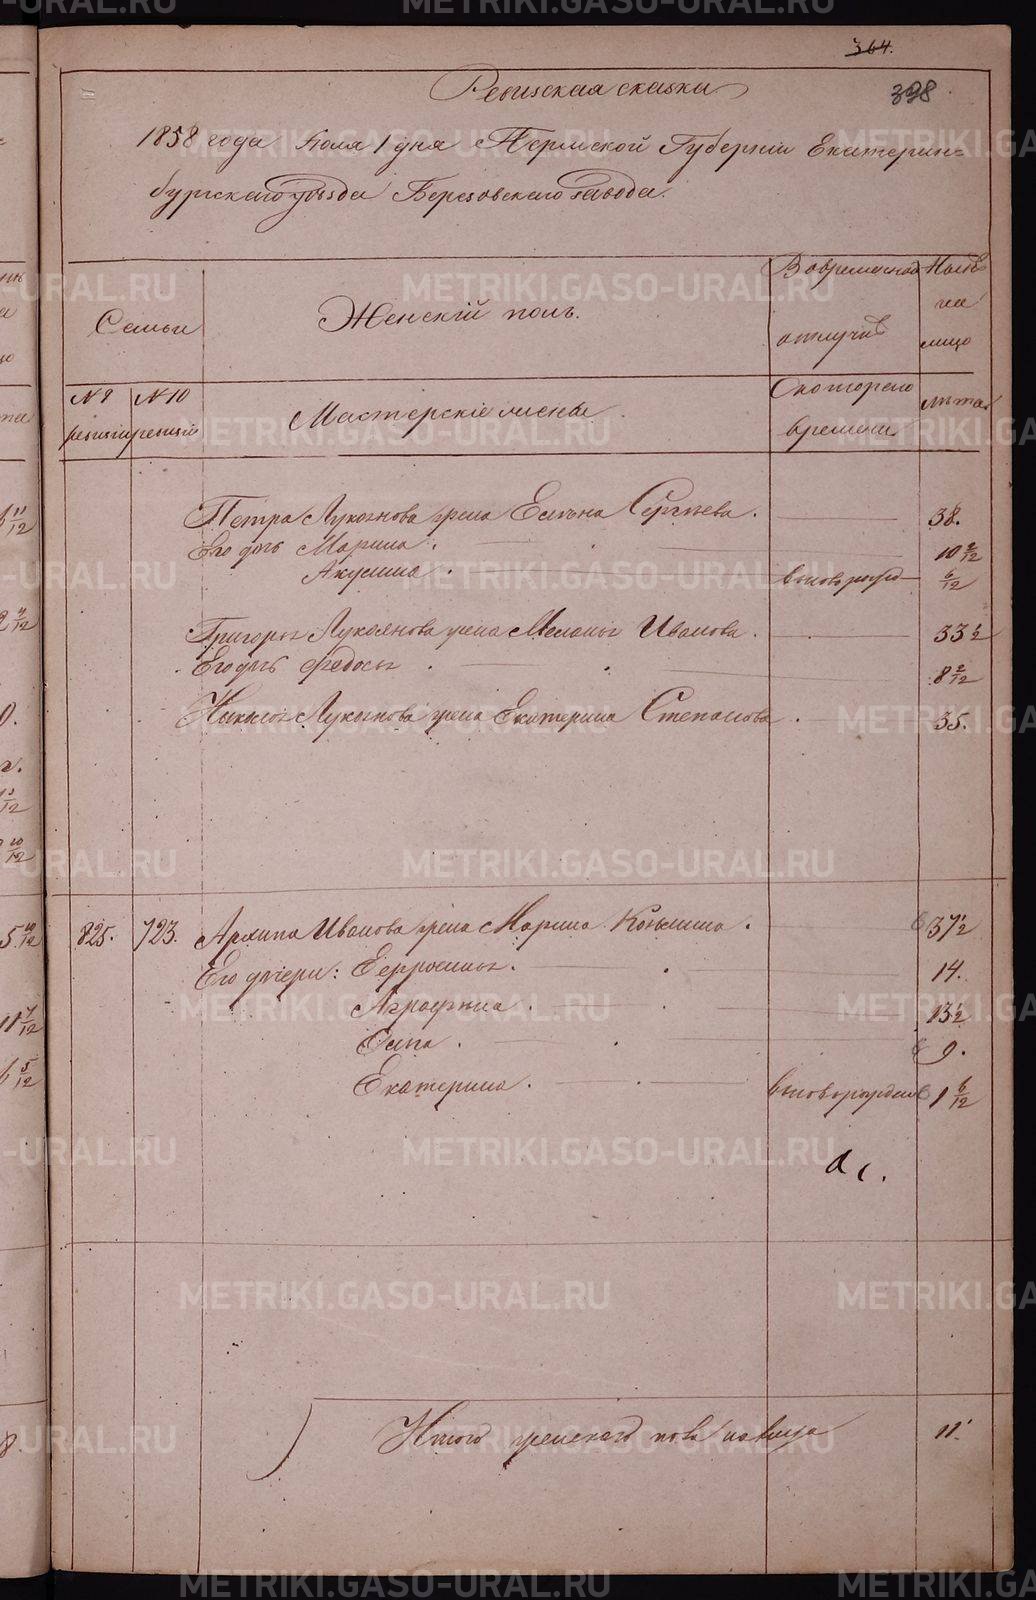 364.
398
Ревизская сказка
1858 года Июля 1 дня Пермской Губернии Екатерин=
бургскаго уезда Березовскаго завода.
Семьи
Женскій полъ.
Во временной отлучкѣ
Нынѣ на лицо
№ 9 ревизіи
№ 10 ревизіи
Мастерскіе жены
Скотораго времени
лѣта
Петра Лукоянова жена Елена Сергѣева. 38.
Его дочь Марина. 10 2/12
Акулина. вновь рожд 6/12
Григорья Лукоянова жена Меланья Иванова. 33 1/2
Его дочь Федосья 8 2/12
Николая Лукоянова жена Екатерина Степанова. 35.
825. 723. Архипа Иванова жена Марина Конькина. 37 1/2
Его дочери: Евросинья. 14.
Аграфена 13 1/2
Елена. 9.
Екатерина. вновь рожден 1 6/12
Итого женскаго пола на лицо 11.
METRIKI.GASO-URAL.RU